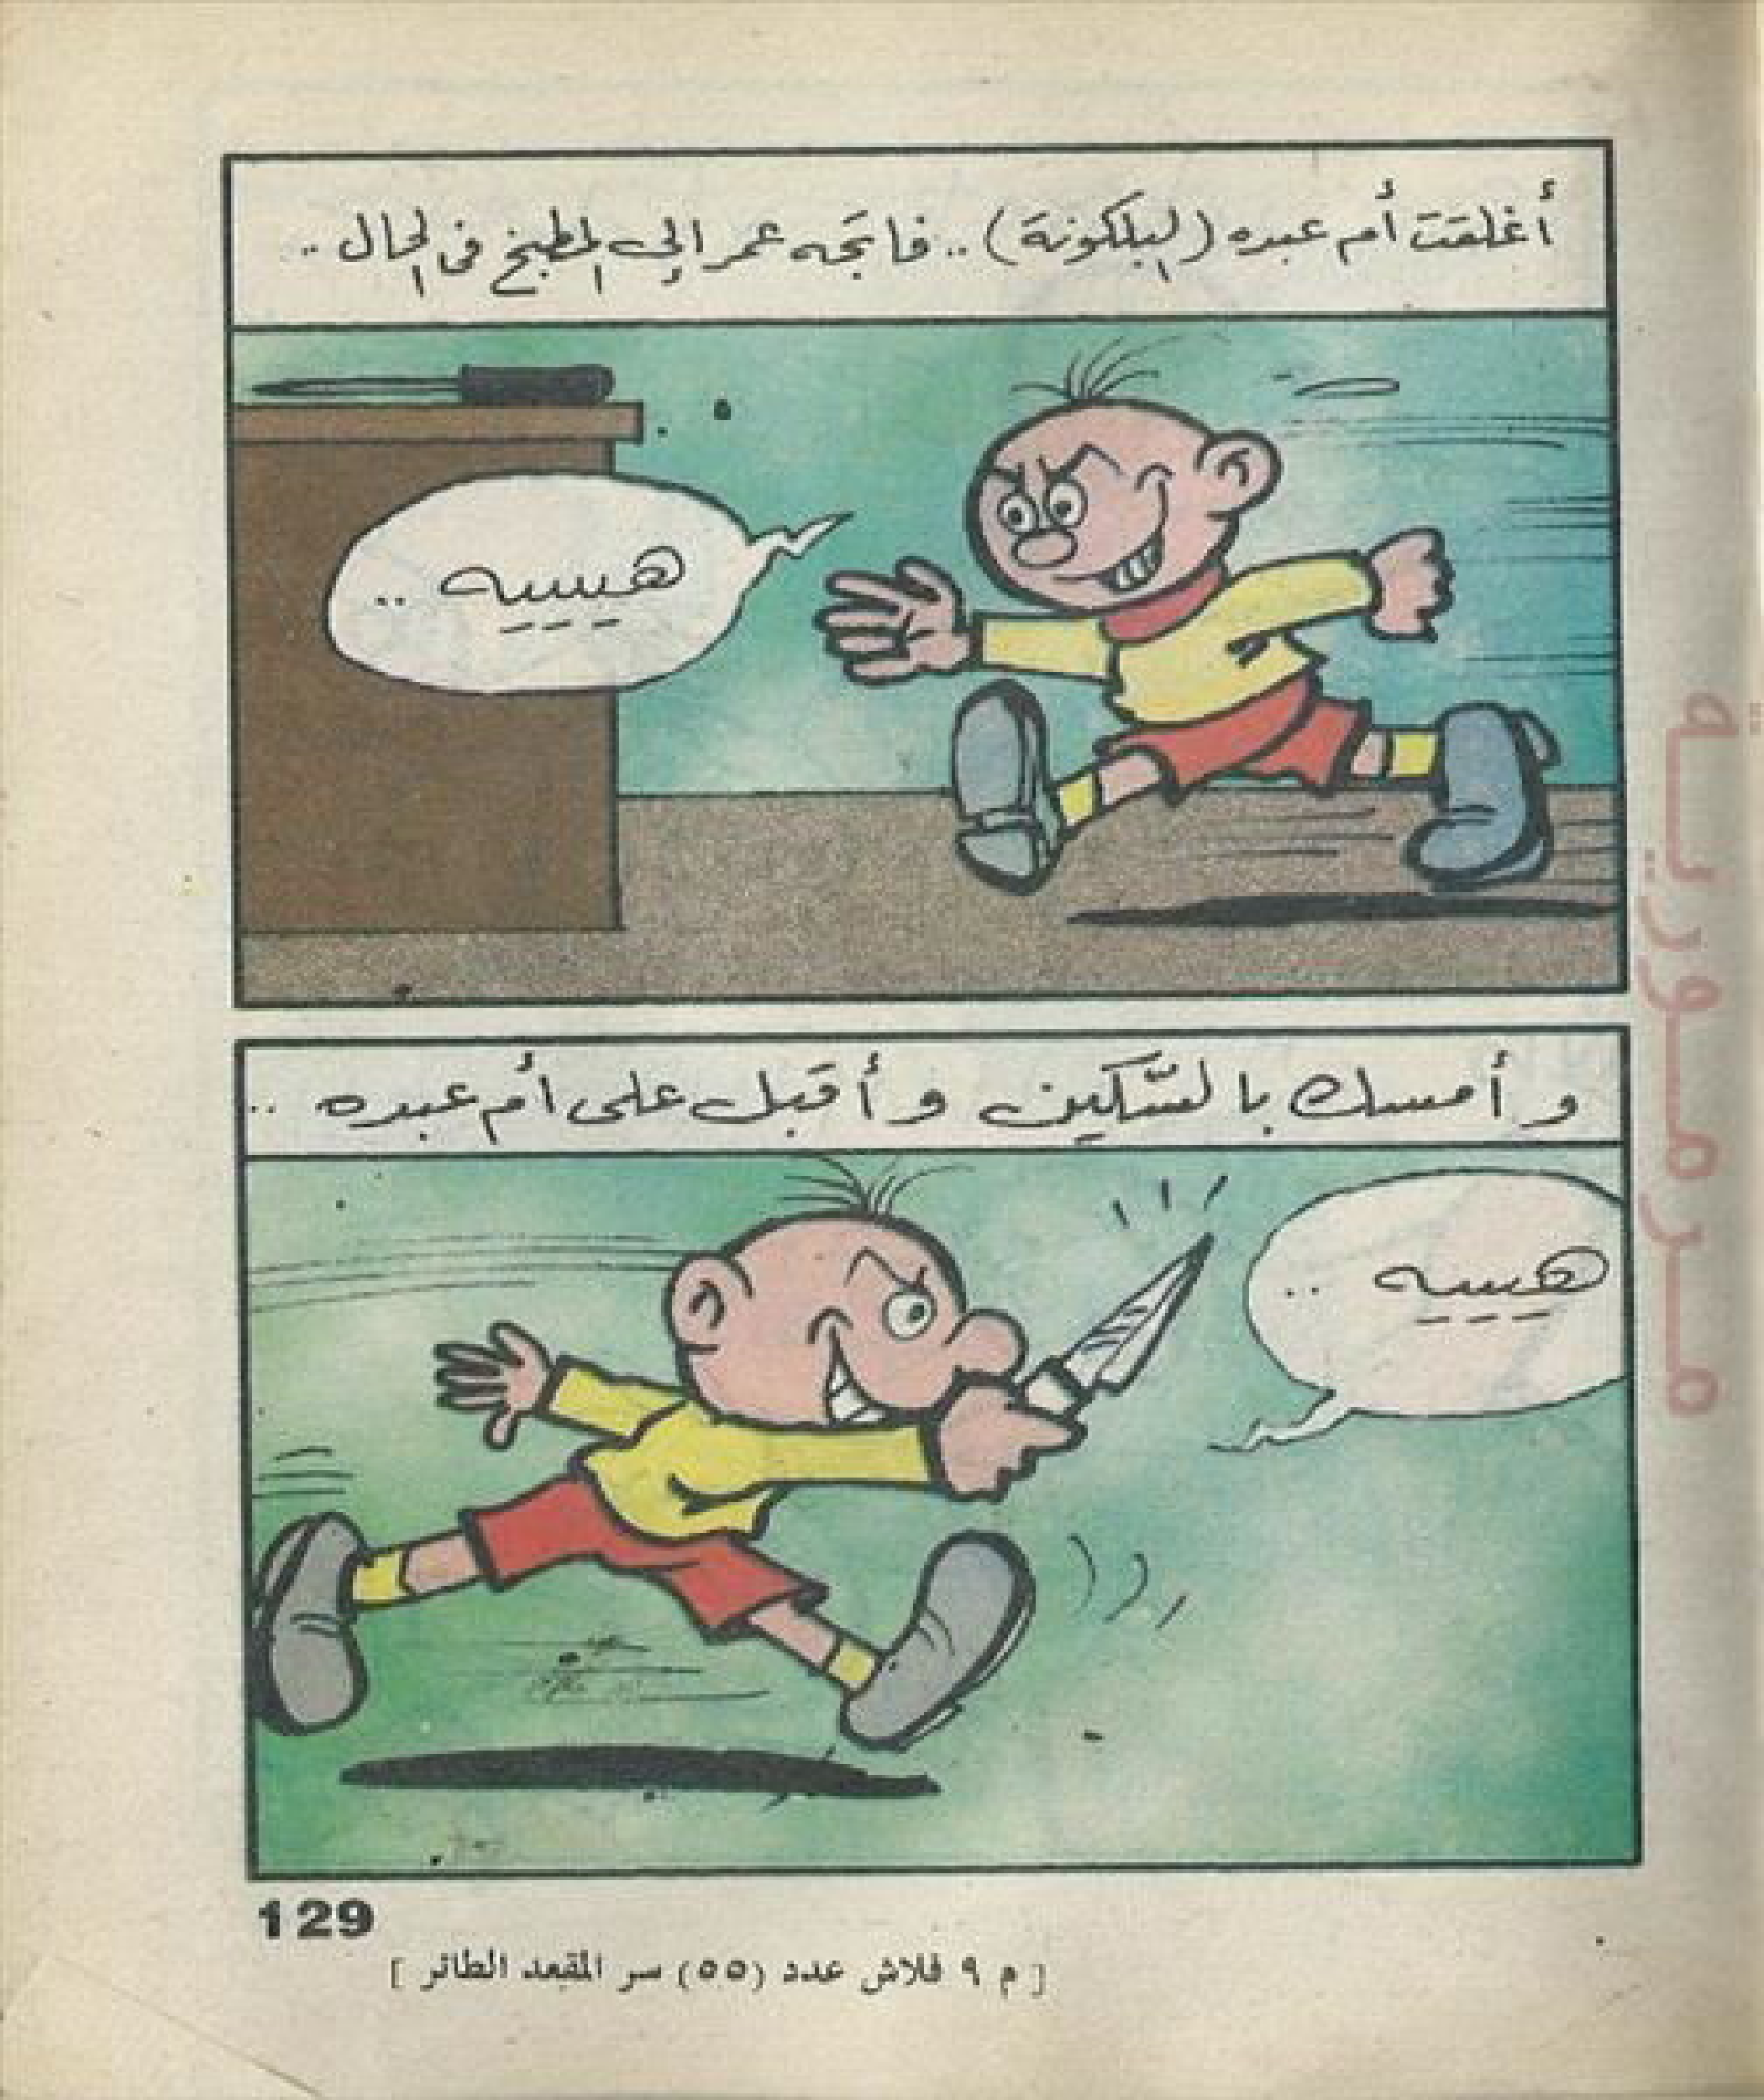 أغلقت أم عبده (البلكونة) .. فاتجَه عمر إلى المطبخ فى الحال ..
هيييه ..
وأمسك بالسّكين وأقبَل على أم عبده ..
هيييه ..
129
[ م ٩ فلاش عدد (٥٥) سر المقعد الطائر ]